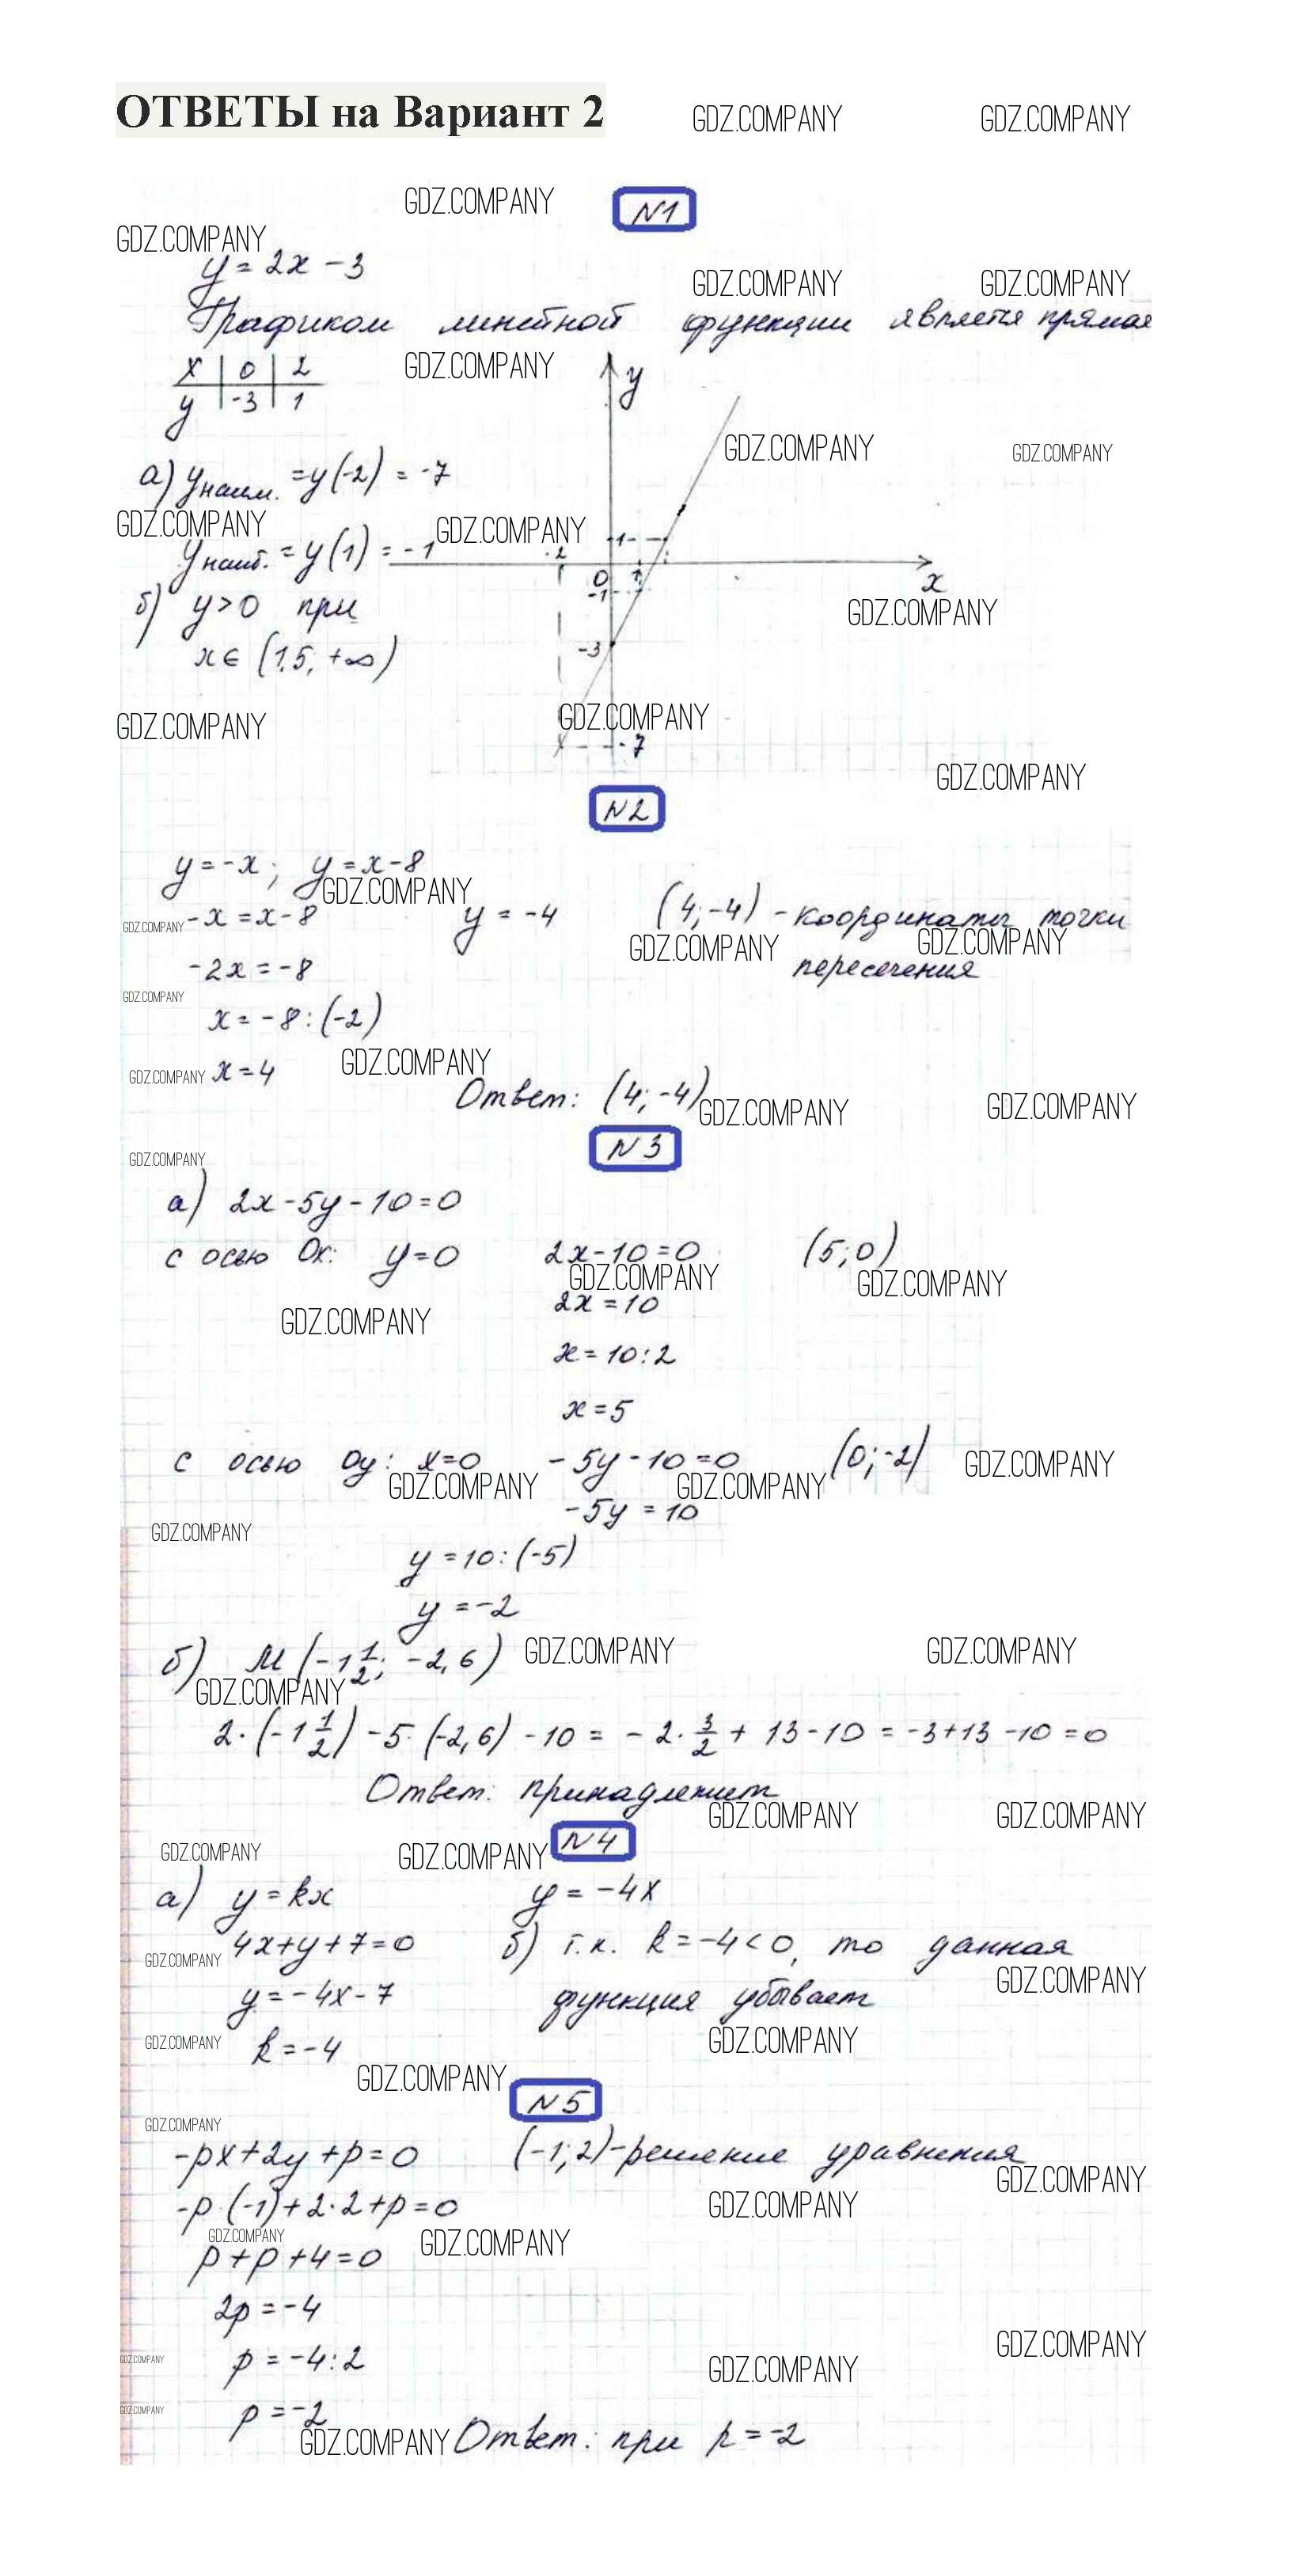 ОТВЕТЫ на Вариант 2
GDZ.COMPANY GDZ.COMPANY
GDZ.COMPANY
N1
GDZ.COMPANY
y = 2x - 3
GDZ.COMPANY GDZ.COMPANY
Графиком линейной функции является прямая
GDZ.COMPANY
x | 0 | 2
y | -3 | 1
y
GDZ.COMPANY GDZ.COMPANY
а) yнаим. = y(-2) = -7
GDZ.COMPANY GDZ.COMPANY
yнаиб. = y(1) = -1
-2 0 1 x
1
-1
-3
-7
б) y > 0 при
GDZ.COMPANY
x ∈ (1,5, +∞)
GDZ.COMPANY GDZ.COMPANY
GDZ.COMPANY
N2
y = -x; y = x - 8
GDZ.COMPANY
GDZ.COMPANY -x = x - 8 y = -4 (4; -4) - координаты точки
GDZ.COMPANY GDZ.COMPANY
-2x = -8 пересечения
GDZ.COMPANY
x = -8 : (-2)
GDZ.COMPANY
GDZ.COMPANY x = 4
Ответ: (4; -4)
GDZ.COMPANY GDZ.COMPANY
N3
GDZ.COMPANY
а) 2x - 5y - 10 = 0
с осью Ox: y = 0 2x - 10 = 0 (5; 0)
GDZ.COMPANY GDZ.COMPANY
2x = 10
GDZ.COMPANY
x = 10 : 2
x = 5
с осью Oy: x = 0 -5y - 10 = 0 (0; -2) GDZ.COMPANY
GDZ.COMPANY GDZ.COMPANY
-5y = 10
GDZ.COMPANY
y = 10 : (-5)
y = -2
б) M (-1 1/2; -2,6) GDZ.COMPANY GDZ.COMPANY
GDZ.COMPANY
2·(-1 1/2) - 5·(-2,6) - 10 = -2·3/2 + 13 - 10 = -3 + 13 - 10 = 0
Ответ: принадлежит
GDZ.COMPANY GDZ.COMPANY
GDZ.COMPANY GDZ.COMPANY N4
а) y = kx y = -4x
4x + y + 7 = 0 б) т.к. k = -4 < 0, то данная
GDZ.COMPANY GDZ.COMPANY
y = -4x - 7 функция убывает
GDZ.COMPANY GDZ.COMPANY
k = -4
GDZ.COMPANY
N5
GDZ.COMPANY
-px + 2y + p = 0 (-1; 2) - решение уравнения
GDZ.COMPANY
-p·(-1) + 2·2 + p = 0 GDZ.COMPANY
GDZ.COMPANY GDZ.COMPANY
p + p + 4 = 0
2p = -4
GDZ.COMPANY
GDZ.COMPANY p = -4 : 2 GDZ.COMPANY
GDZ.COMPANY p = -2
GDZ.COMPANY Ответ: при p = -2